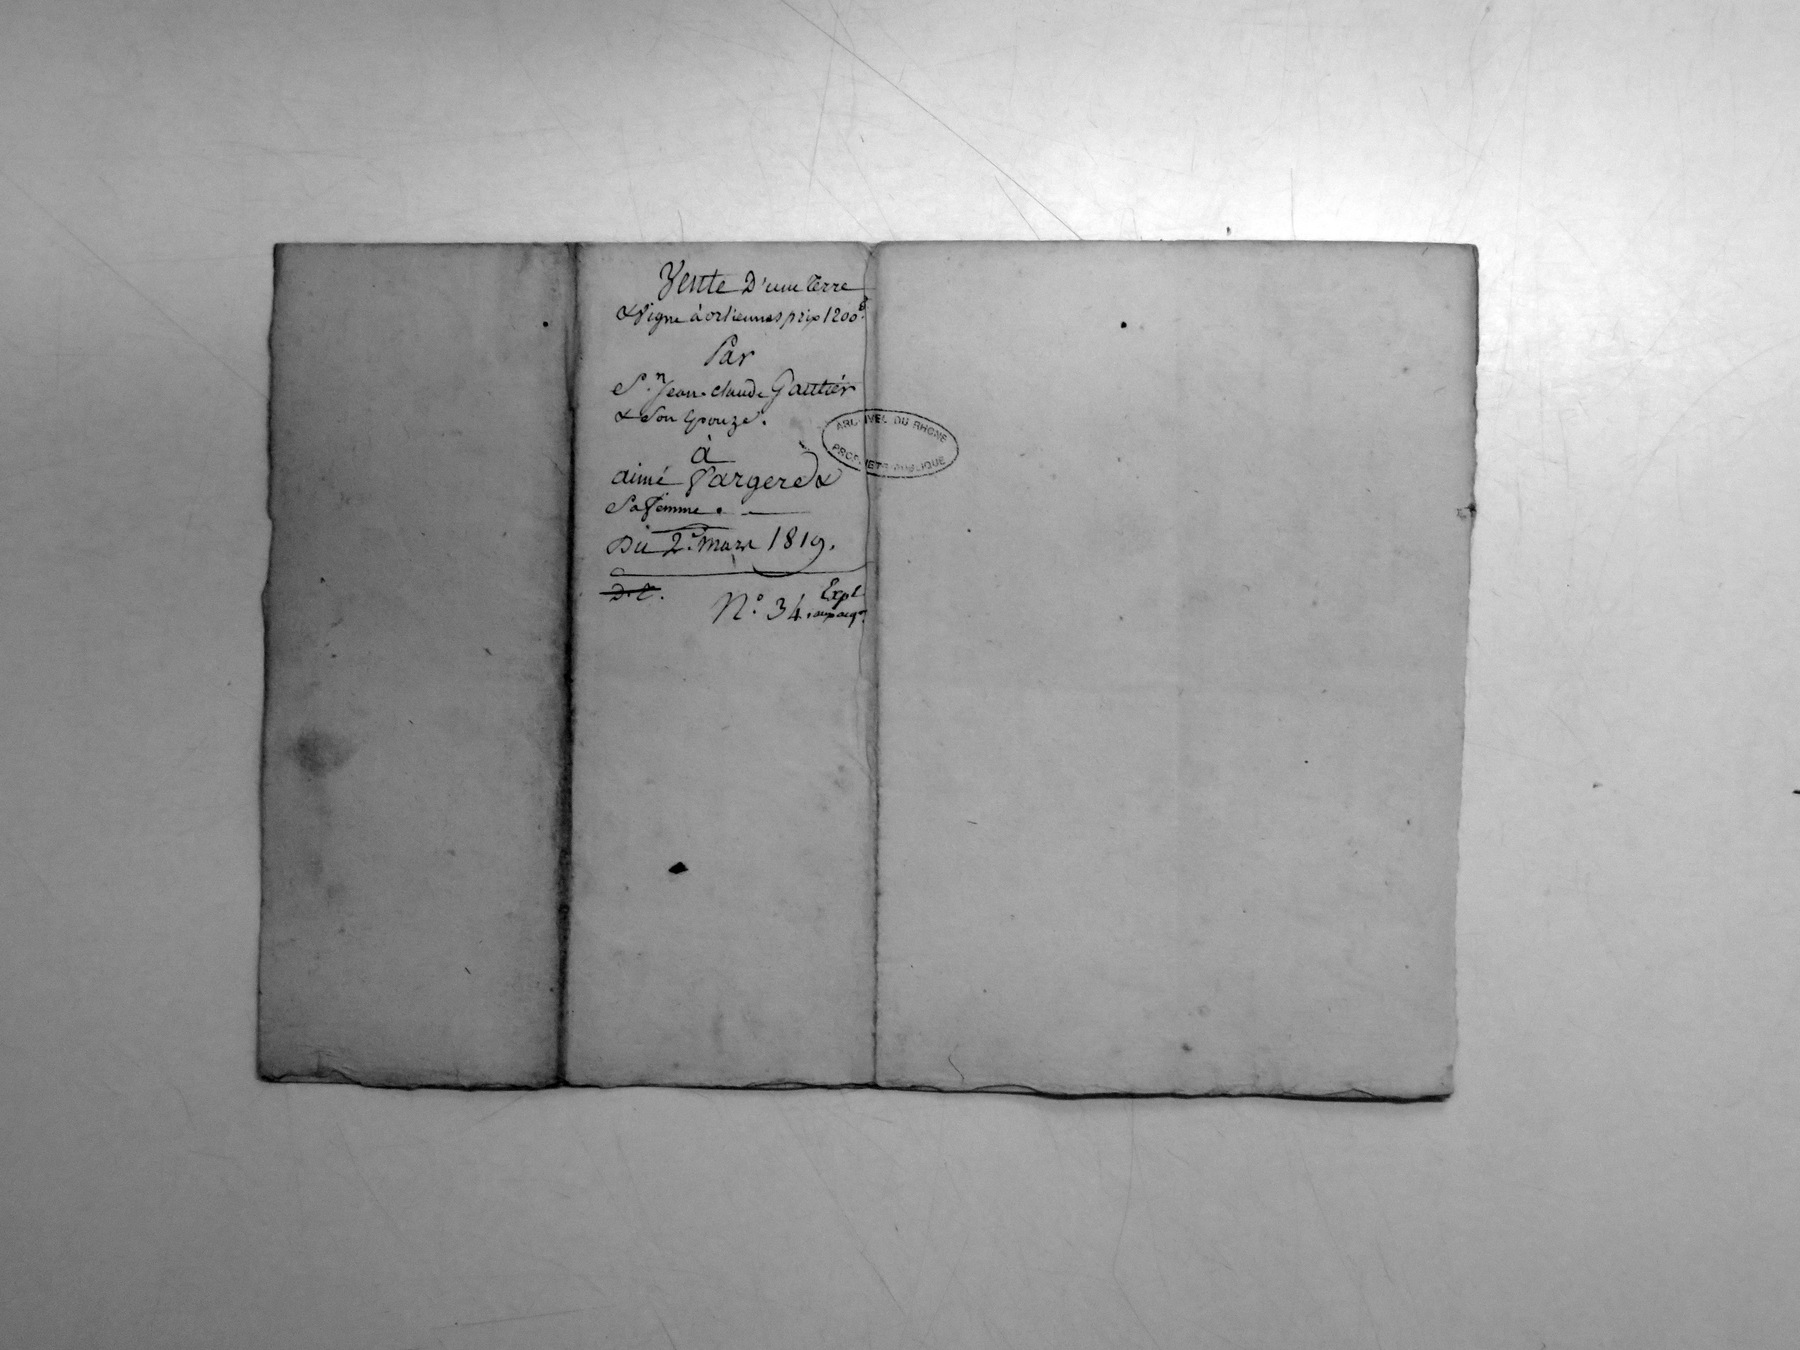 Vente D'une Terre
& Vigne à orliennas prix 1200f.
Par
Sr. Jean-claude Gautier
& Son Epouze.
à
aimé Vargere &
Sa femme.
Du 2. mars 1819.
D.C.
N.° 34. Expé.
ARCHIVES DU RHONE
PROPRIETE PUBLIQUE